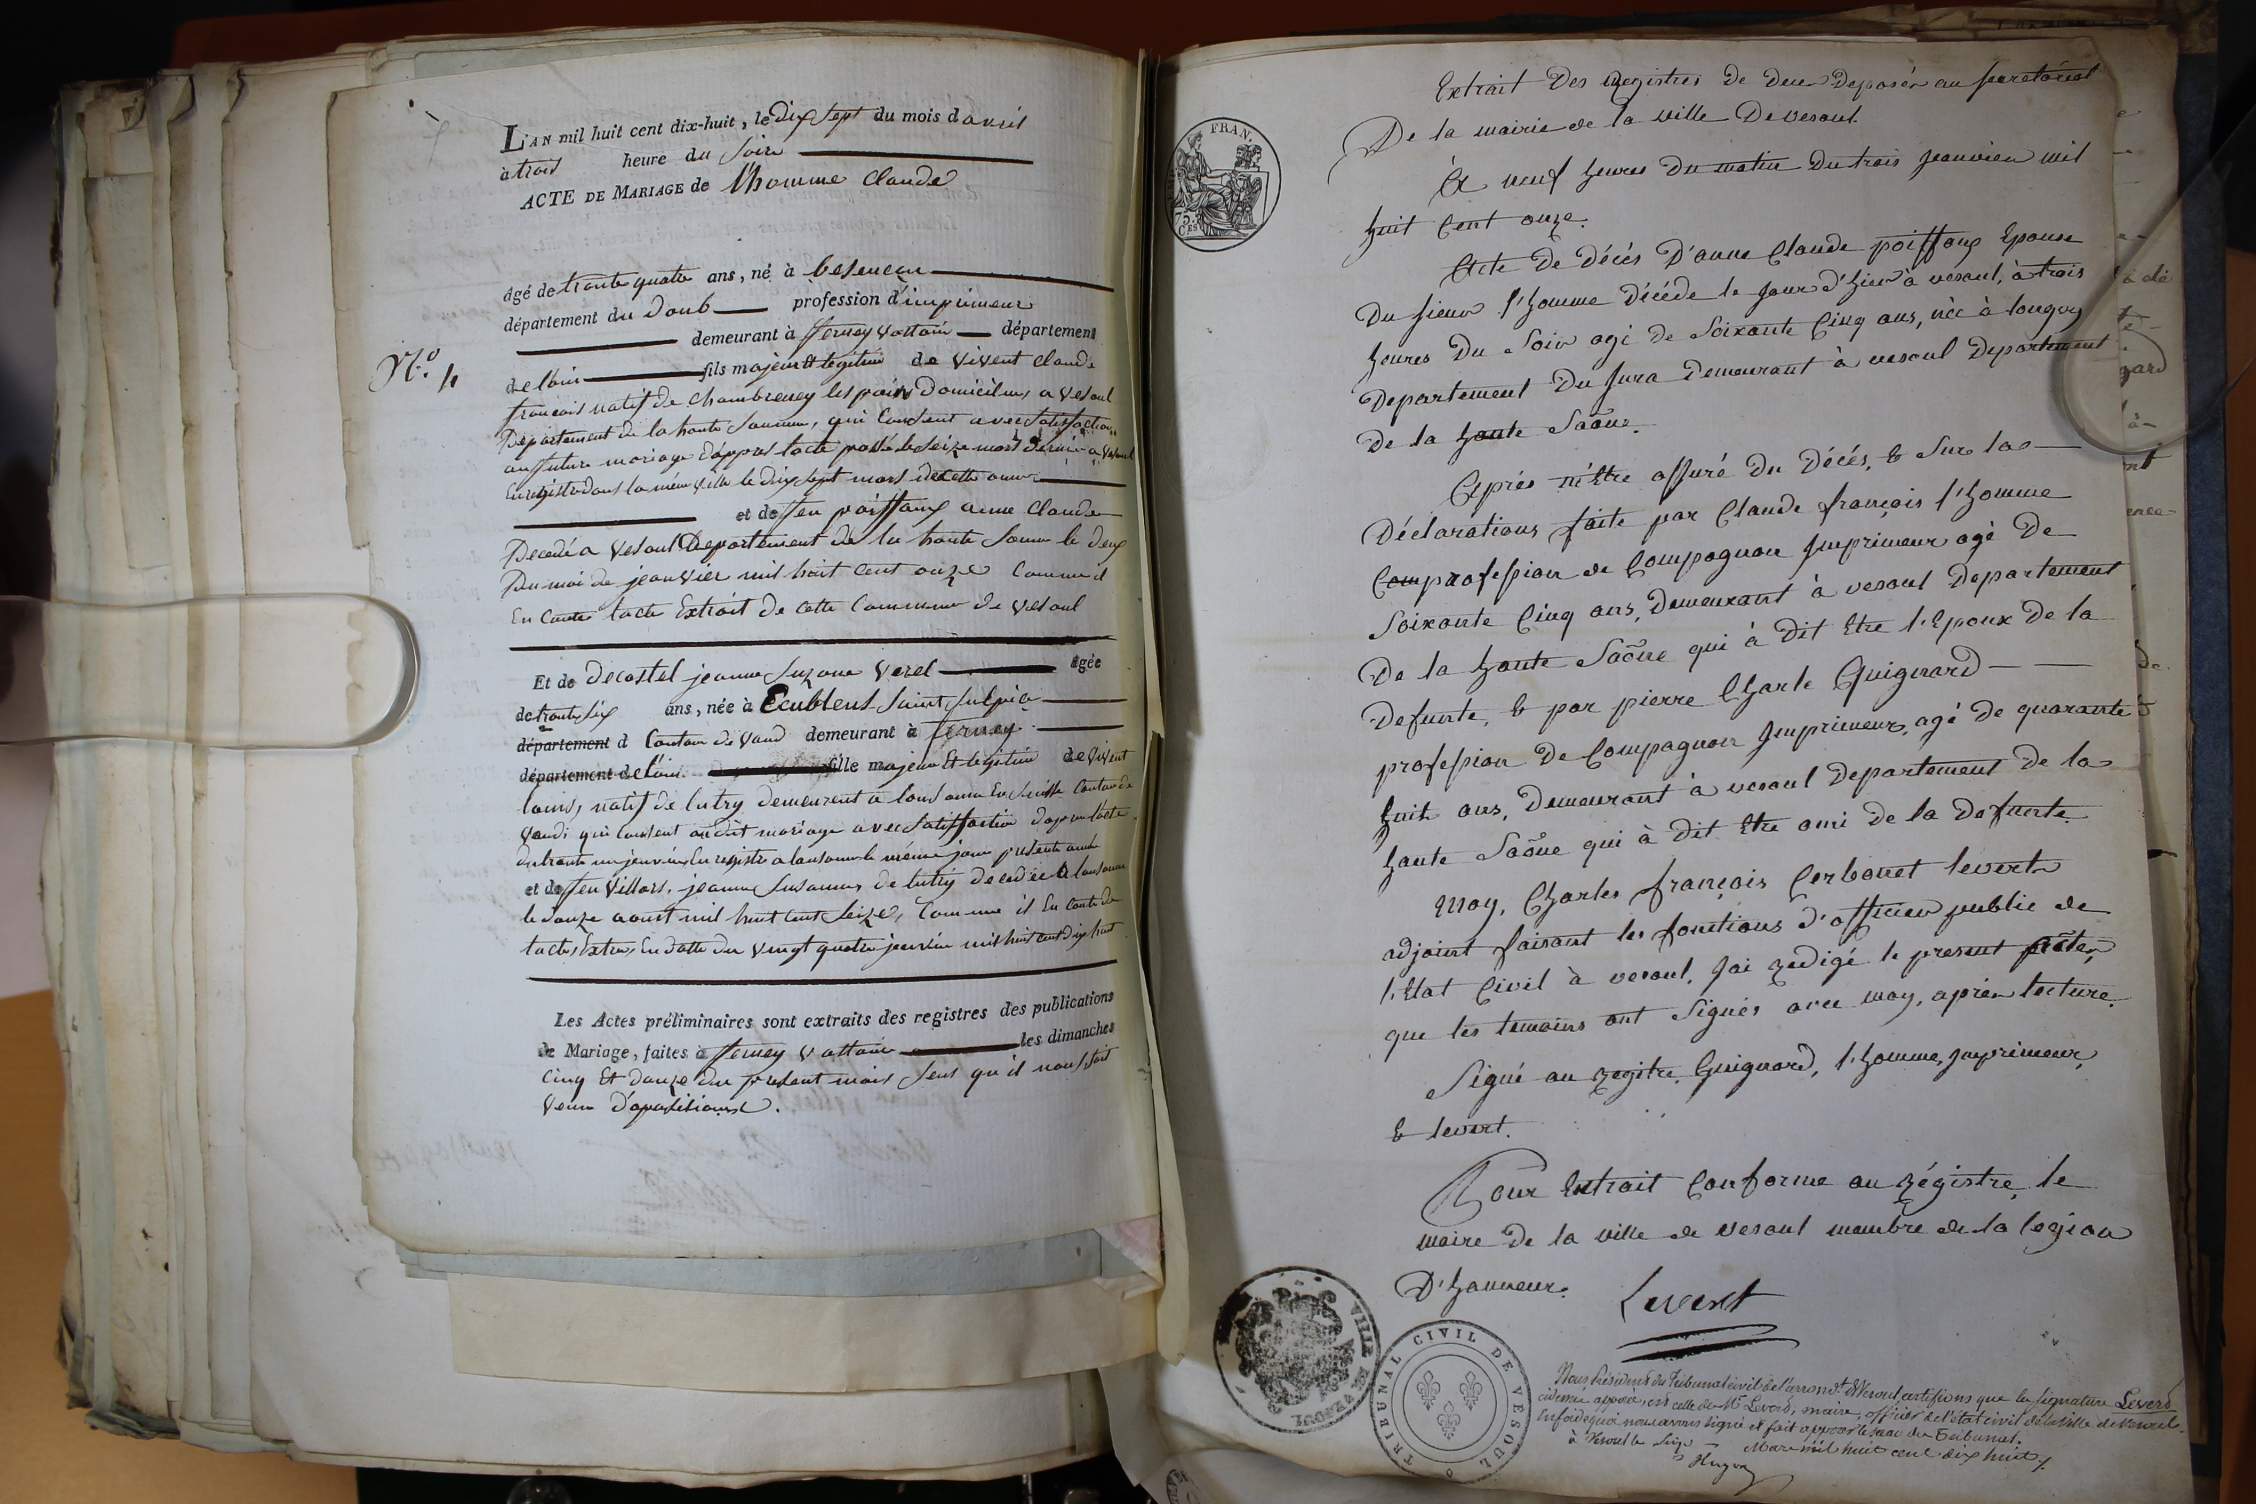 L'AN mil huit cent dix-huit, le dix sept du mois d avril
à trois heure du soir
ACTE DE MARIAGE de l'homme Claude
âgé de trente quatre ans, né à besencon
département du Doub profession d'imprimeur
demeurant à fferney Voltair département
de l'ain fils majeur et legitime de vivent Claude
N.° 4
francois natif de Chambreney les pains Domicilier a Vesoul
Departement de la haute Saonne, qui Consent avec satisfaction
au future mariage d'appres l'acte passé le seize mars dernier a Vesoul
Enregistre dans la meme ville le dix sept mars de cette annee
et de feu poiffaux anne Claude
Decedé a Vesoul Departement de la haute Sonne le deux
Du moi de jeanvier mil huit cent onze Comme il
En Conste l'acte Extrait de cette Commune de Vesoul
Et de Decostel jeanne Suzane Verel âgée
de trente six ans, née à Ecublens Saint Sulpice
département d Canton de Vaud demeurant à fferney
département de l'ain fille majeur Et legitime de vivent
louis, natif de lutry demeurent a lausanne En Suisse Canton de
Vaud; qui consent audit mariage avec satisfaction d'apres l'acte
du trente un jeanvier En registre a lausanne le même jour present année
et de feu Villars, jeanne Susanne, de lutry decedée a lausanne
le douze aoust mil huit cent Seize, Comme il En Conste de
l'acte Extrais En datte du vingt quatre jeanvier mil huit cent dix huit
Les Actes préliminaires sont extraits des registres des publications
de Mariage, faites à fferney Voltair les dimanches
Cinq Et Douze du present mois sens qu'il nous soit
Venu d'opositions.
Extrait Des Registres de deces Deposés au Secretariat
De la mairie de la ville De vesoul
FRAN.
75
CES
A neuf heures Du matin Du trois Jeanvier mil
huit Cent onze.
Acte De Décés D'anne Claude poiffoux Epouse
Du sieur l'homme Décédé le Jour d'hier à vesoul, à trois
heures Du Soir agé de Soixante Cinq ans, née à longvy
Departement Du Jura Demeurant à vesoul Departement
De la haute Saône.
Après m'Etre assuré Du Décés, & Sur la
Déclarations faite par Claude françois l'homme
Comprofession de Compagnon Imprimeur agé De
Soixante Cinq ans, Demeurant à vesoul Departement
De la haute Saône qui à Dit Etre l'Epoux De la
Defunte, & par pierre Charle Guignard
profession De Compagnon Imprimeur, agé de quarante
huit ans, Demeurant à vesoul Departement De la
haute Saône qui à Dit Etre ami De la Defunte.
Moy, Charles françois Cerbonet levert
adjoint faisant les fonctions d'officier public de
l'Etat Civil à vesoul, J'ai redigé le present acte,
que les temoins ont Signés avec moy, après lecture.
Signé au registre, Guignard, l'homme, Imprimeur,
& levert.
Pour Extrait Conforme au régistre, le
maire De la ville de vesoul membre de la legion
D'honneur.
Levert
VILLE DE VESOUL
TRIBUNAL CIVIL DE VESOUL
Nous Président du Tribunal civil de l'arrond.t de Vesoul certifions que la signature Leverd
cidessus apposée, est celle de M.r Leverd, maire, officier de l'état civil de la ville de Vesoul.
En foi de quoi nous avons signé et fait apposer le sceau du Tribunal.
à Vesoul le Seize Mars mil huit cent dix huit.